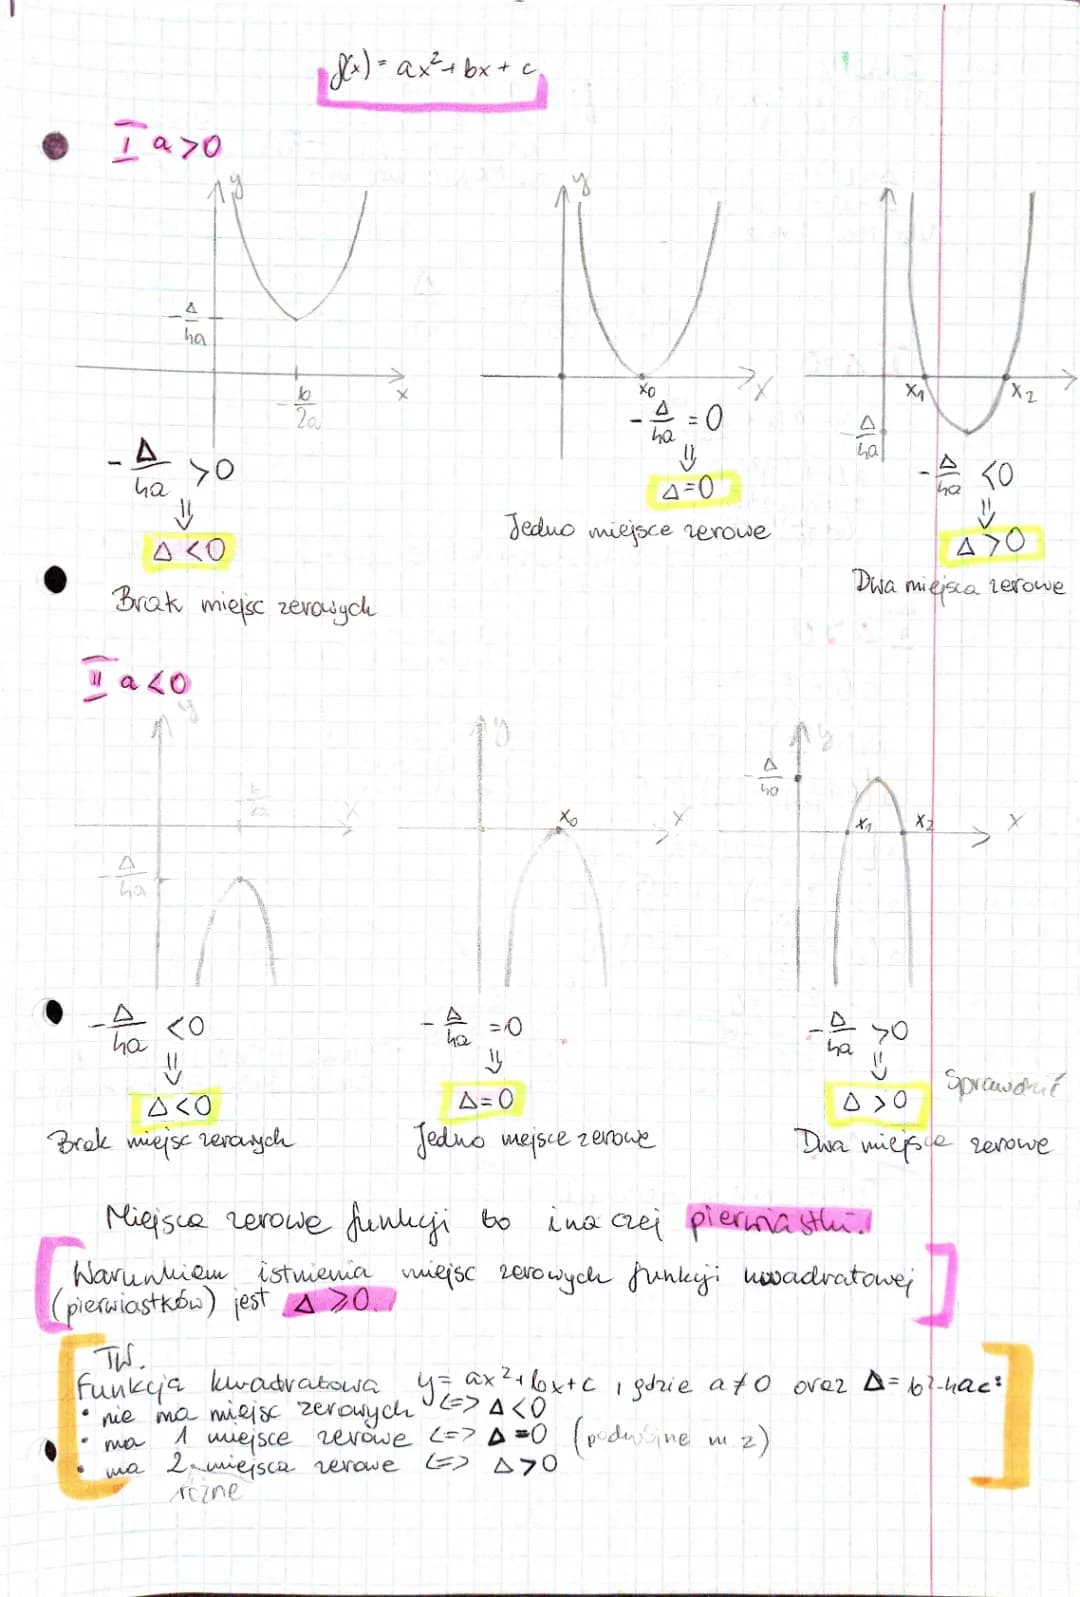 f(x) = ax²+bx+c
I a>0
y
y
-Δ/4a
x
-b/2a
x₀
x
x₁
x₂
-Δ/4a
-Δ/4a >0
⇓
Δ<0
Brak miejsc zerowych
-Δ/4a =0
⇓
Δ=0
Jedno miejsce zerowe
-Δ/4a <0
⇓
Δ>0
Dwa miejsca zerowe
II a<0
y
y
y
-b/2a
x
-Δ/4a
x₀
x
-Δ/4a
x₁
x₂
x
-Δ/4a <0
⇓
Δ<0
Brak miejsc zerowych
-Δ/4a =0
⇓
Δ=0
Jedno mejsce zerowe
-Δ/4a >0
⇓
Δ>0
Sprawdzić
Dwa miejsce zerowe
Miejsca zerowe funkcji to inaczej pierwiastki.
Warunkiem istnienia miejsc zerowych funkcji kwadratowej
(pierwiastków) jest Δ⩾0.
TW.
Funkcja kwadratowa y=ax²+bx+c, gdzie a≠0 oraz Δ=b²-4ac:
• nie ma miejsc zerowych <=> Δ<0
• ma 1 miejsce zerowe <=> Δ=0 (podwójne m. z)
• ma 2 miejsca zerowe <=> Δ>0
różne